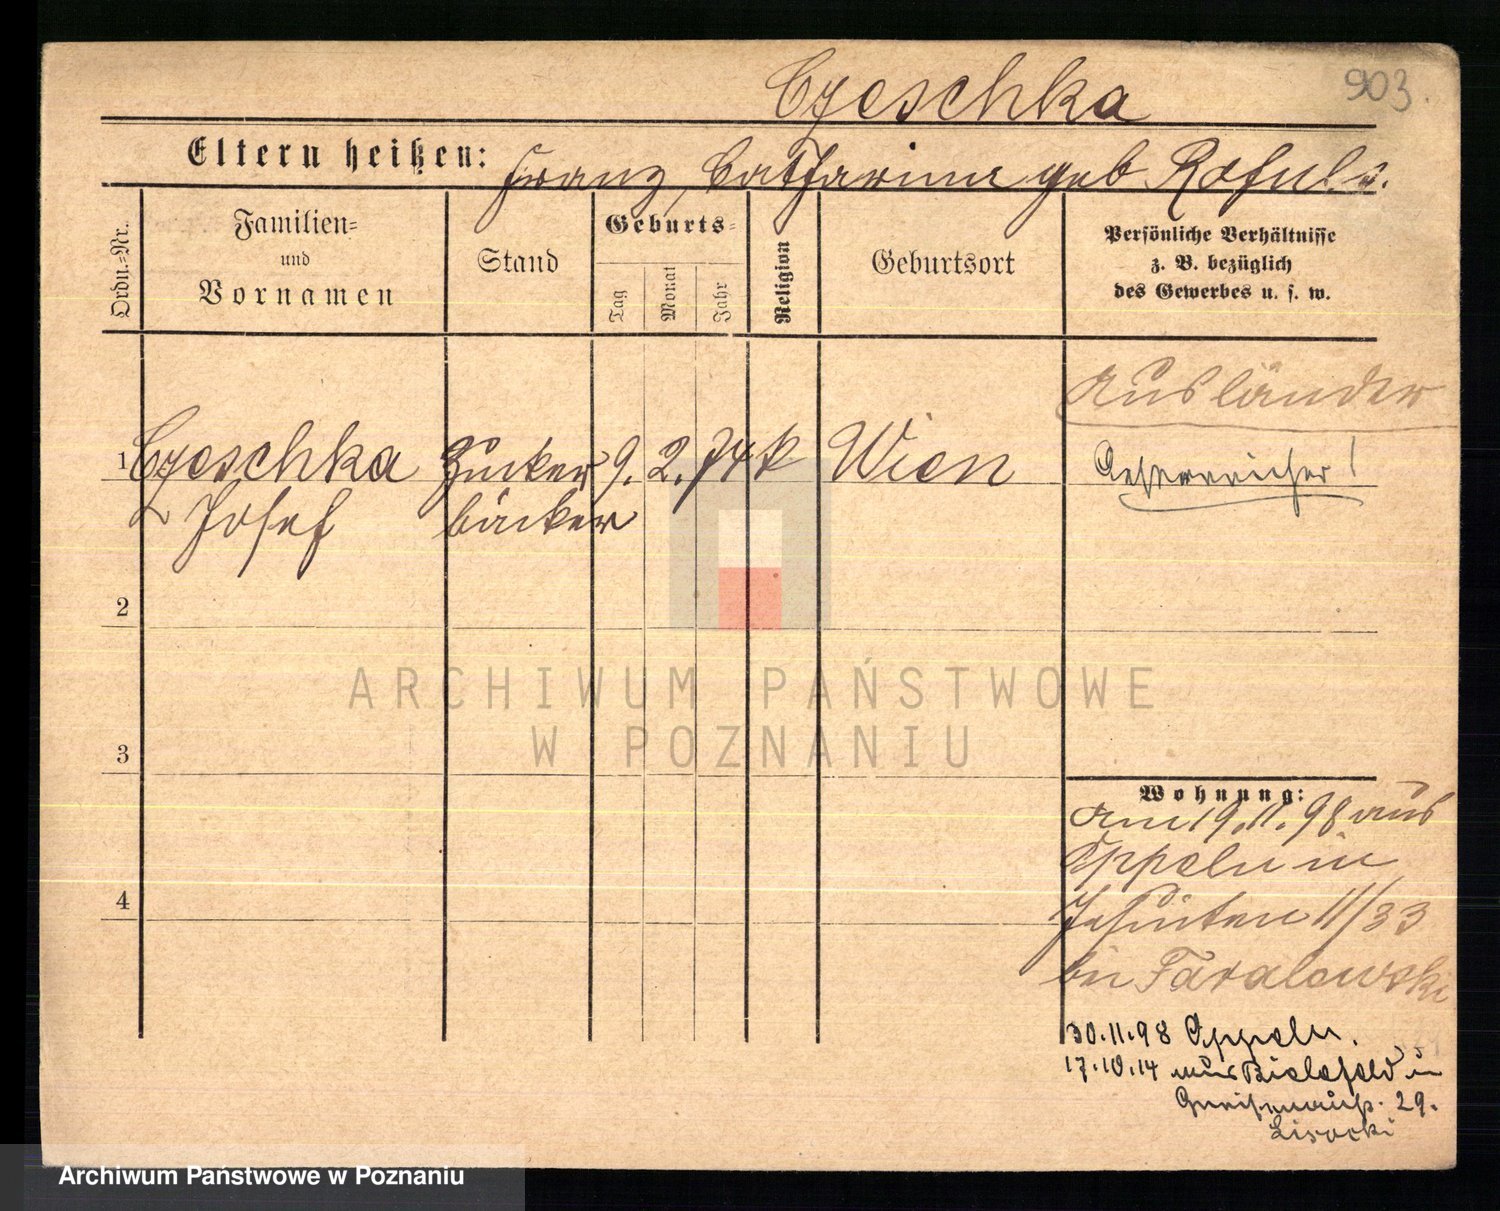 Czeschka
903.
Eltern heißen: Franz, Catharina geb
Ordn.-Nr.
Familien-
und
Vornamen
Stand
Geburts-
Tag
Monat
Jahr
Religion
Geburtsort
Persönliche Verhältnisse
z. B. bezüglich
des Gewerbes u. s. w.
Ausländer
1 Czeschka Zucker 9. 2. 74 k Wien Oesterreicher!
Josef bäcker
2
3
4
ARCHIWUM PAŃSTWOWE
W POZNANIU
Wohnung:
am 19.11.98 aus
Oppeln in
Jesuiten 11/33
bei
30.11.98 Oppeln.
17.10.14 aus Bielefeld in
Gneisenaustr. 29.
Lisocki
Archiwum Państwowe w Poznaniu